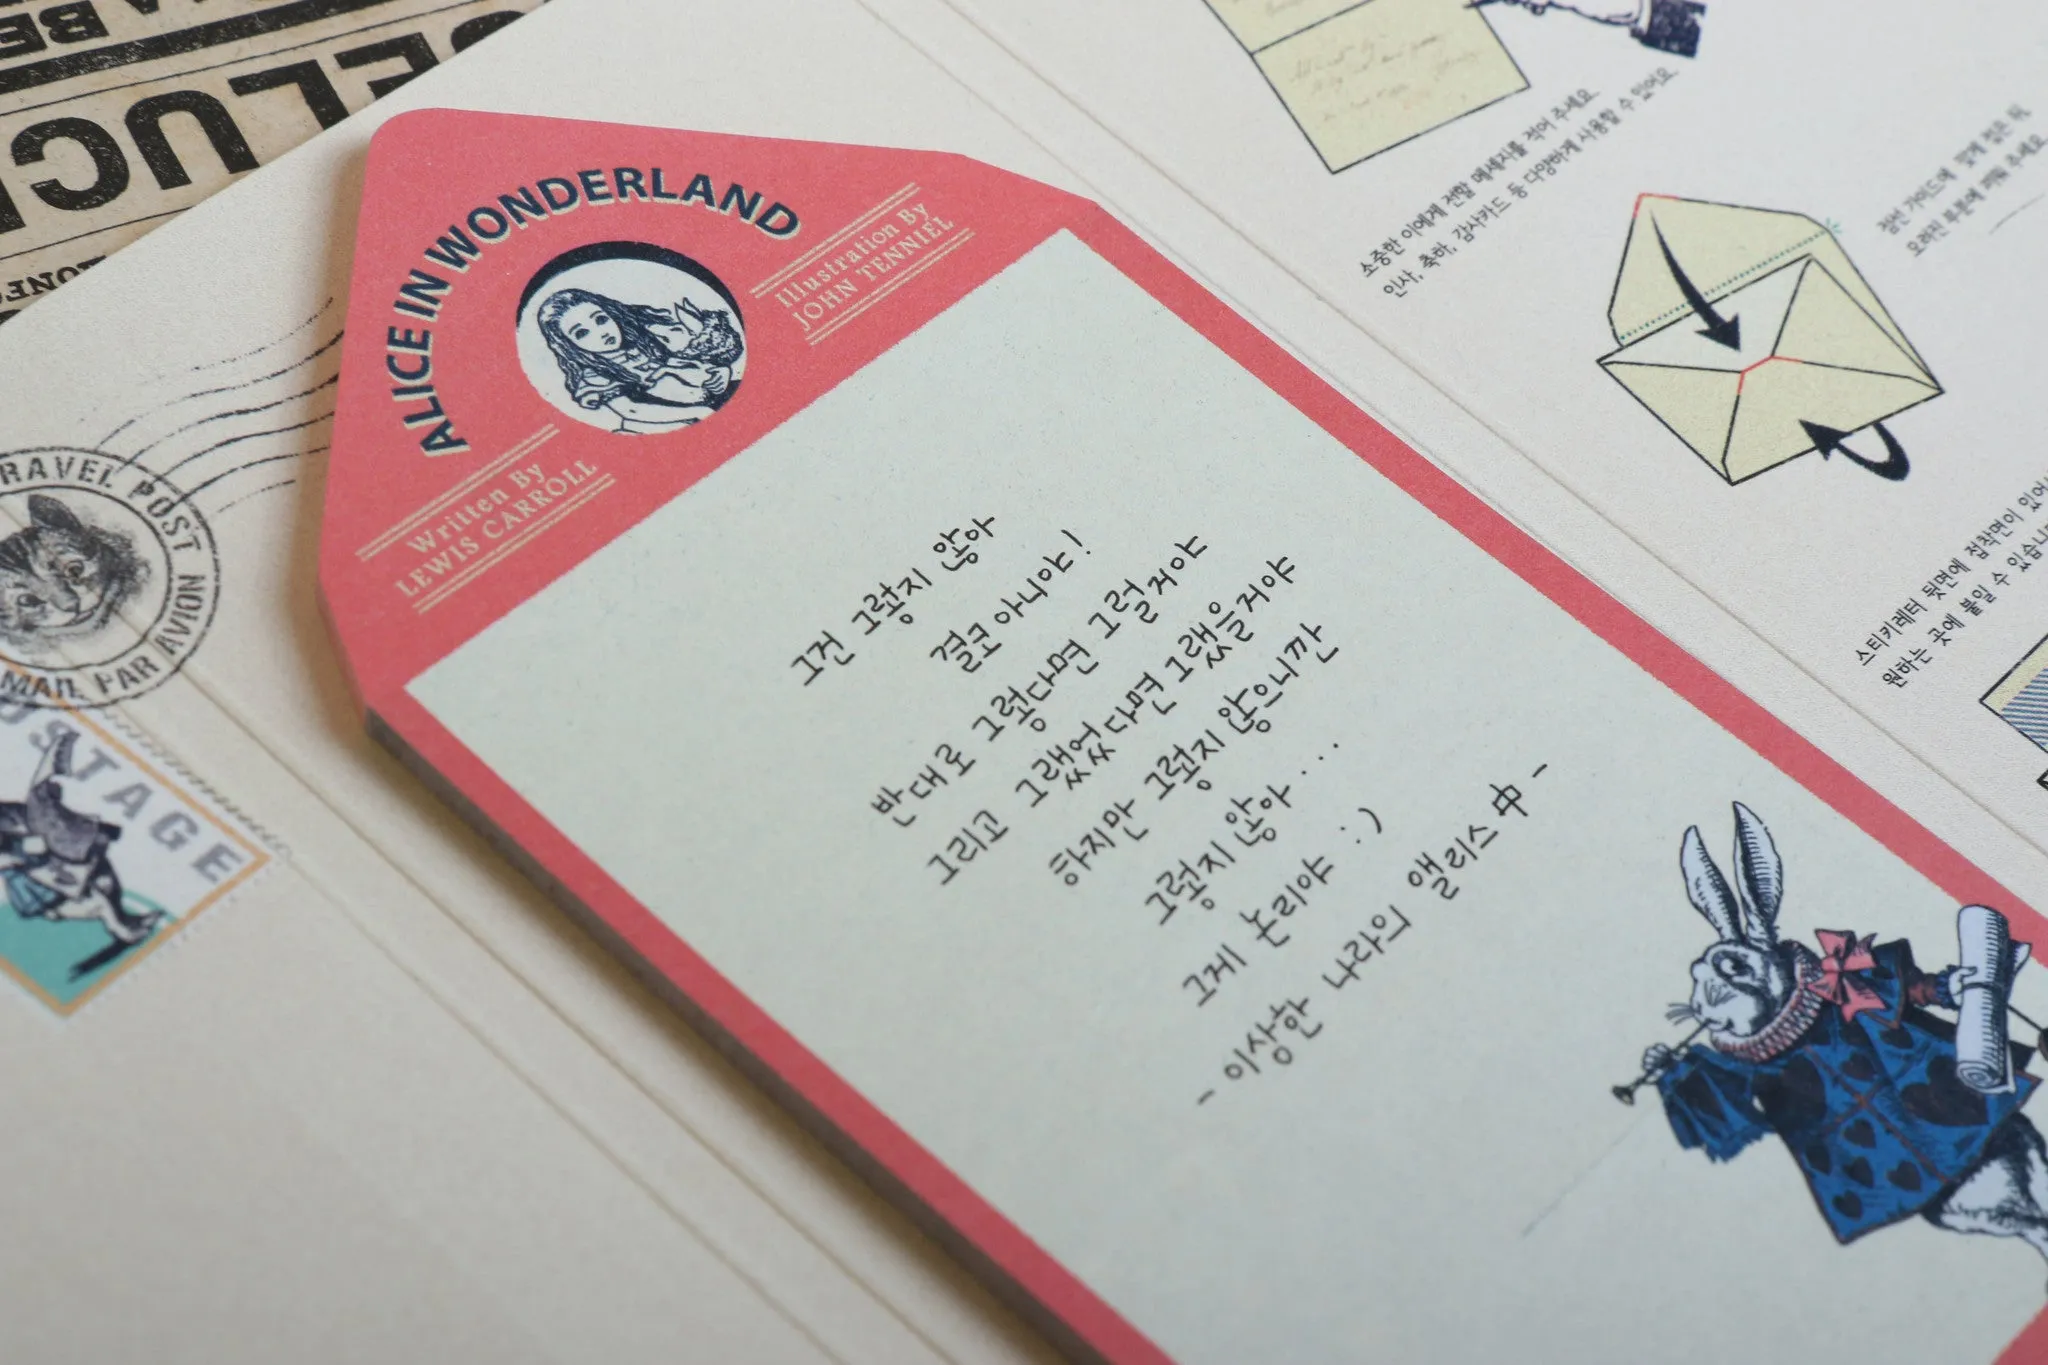 ALICE IN WONDERLAND
Illustration By
JOHN TENNIEL
Written By
LEWIS CARROLL
그건 그렇지 않아
결코 아니야!
반대로 그렇다면 그럴거야
그리고 그랬었다면 그랬을거야
하지만 그렇지 않으니깐
그렇지 않아...
그게 논리야 :)
- 이상한 나라의 앨리스 中 -
소중한 이에게 전할 메세지를 적어 주세요
인사, 축하, 감사카드 등 다양하게 사용할 수 있어요
점선 가이드에 맞게 접은 뒤,
오려진 부분에 끼워 주세요
스티키레터 뒷면에 접착면이 있어
원하는 곳에 붙일 수 있습니
RAVEL POST
MAIL PAR AVION
POSTAGE